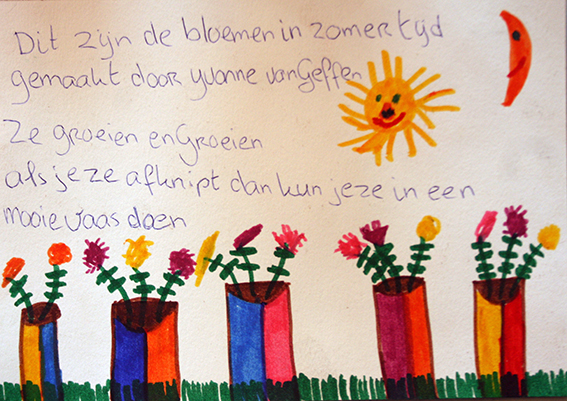 Dit zijn de bloemen in zomertijd
gemaakt door yvonne van Geffen
Ze groeien en Groeien
als je ze afknipt dan kun je ze in een
mooie vaas doen